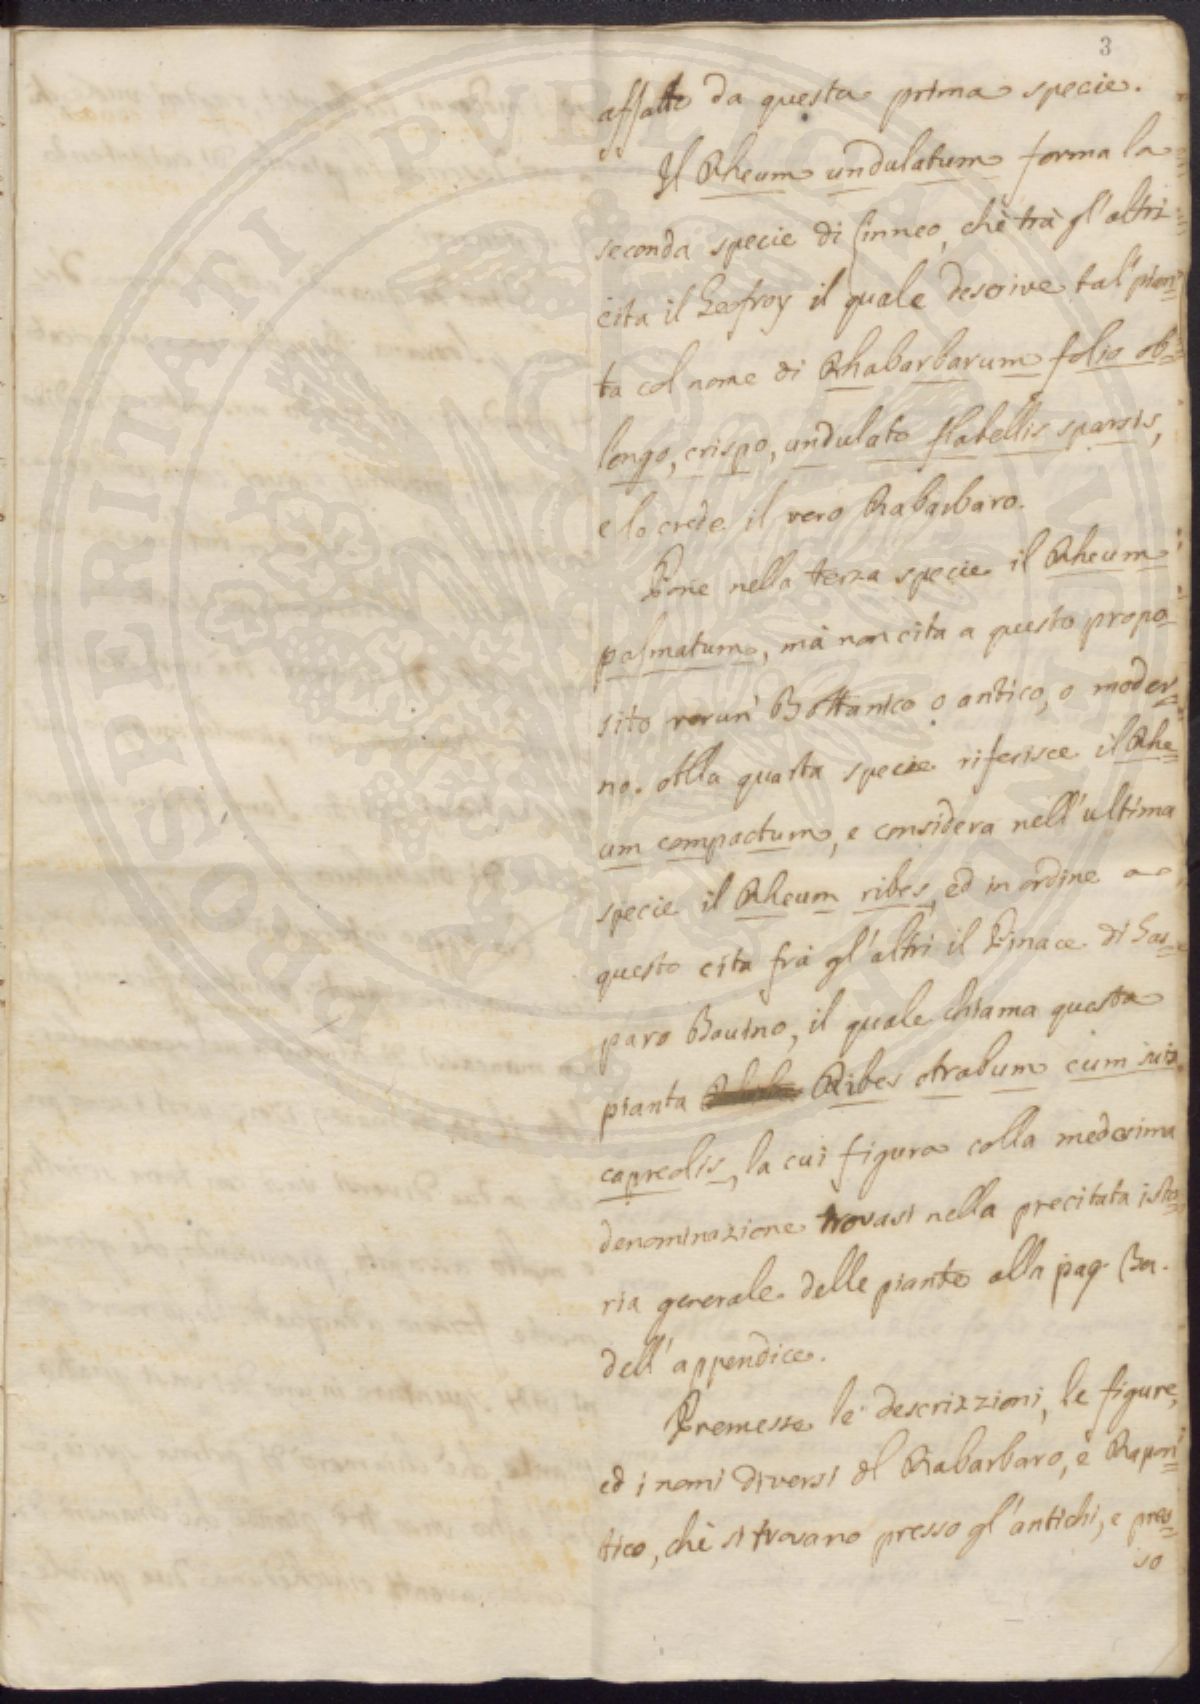 3
affatto da questa prima specie.
Il Rheum undulatum forma la
seconda specie di Linneo, chè trà gl'altri
cita il Geofroy il quale descrive tal pian=
ta col nome di Rhabarbarum folio ob=
longo, crispo, undulato flabellis sparsis,
e lo crede il vero Rabarbaro.
Pone nella terza specie il Rheum
palmatum, mà non cita a questo propo=
sito verun' Bottanico o antico, o moder=
no. Alla quarta specie riferisce il Rhe=
um compactum, e considera nell'ultima
specie il Rheum ribes, ed in ordine a
questo cita frà gl'altri il Pinace di Gas=
paro Bauino, il quale chiama questa
pianta Ribes Arabum cum suis
capreolis, la cui figura colla medesima
denominazione trovasi nella precitata isto=
ria generale delle piante alla pag.
dell'appendice.
Premesse le descrizzioni, le figure,
ed i nomi diversi del Rabarbaro, e Rapon=
tico, chè si trovano presso gl'antichi, e pres=
so
PROSPERITATI PVBLICAE